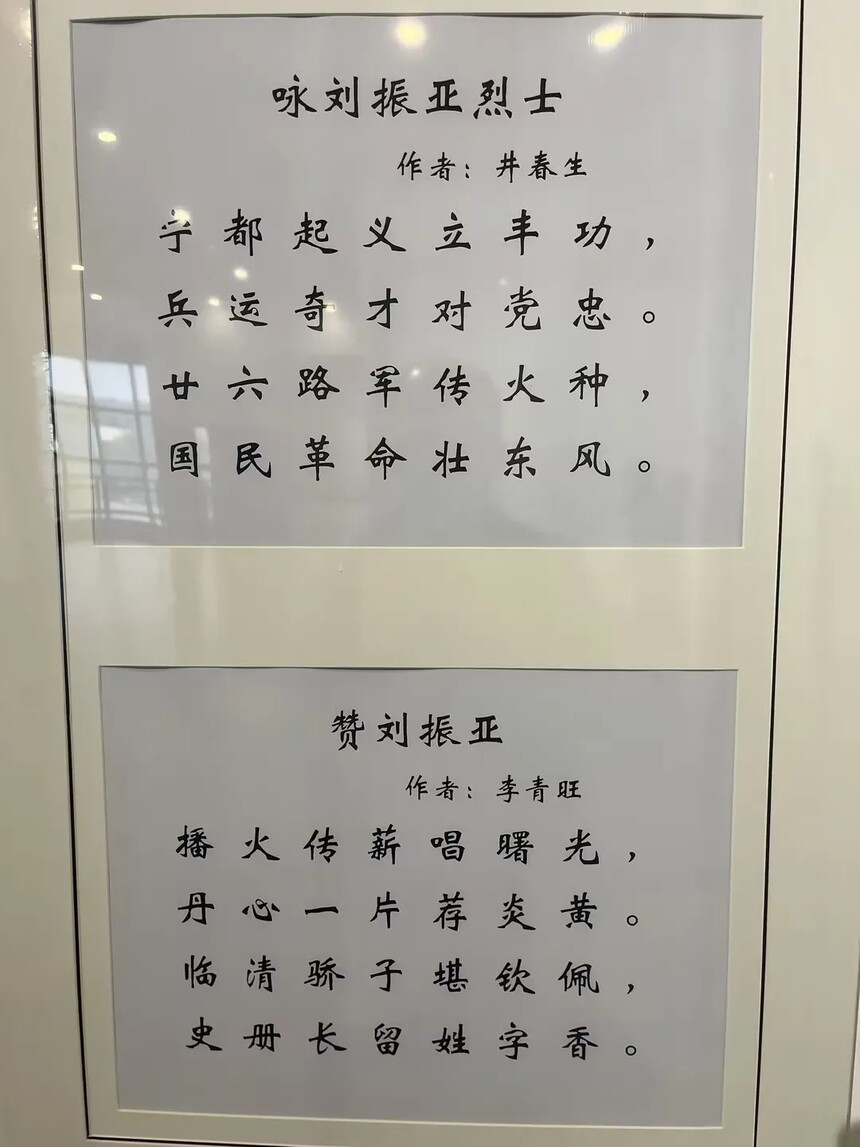 咏刘振亚烈士
作者：井春生
宁都起义立丰功，
兵运奇才对党忠。
廿六路军传火种，
国民革命壮东风。
赞刘振亚
作者：李青旺
播火传薪唱曙光，
丹心一片荐炎黄。
临清骄子堪钦佩，
史册长留姓字香。